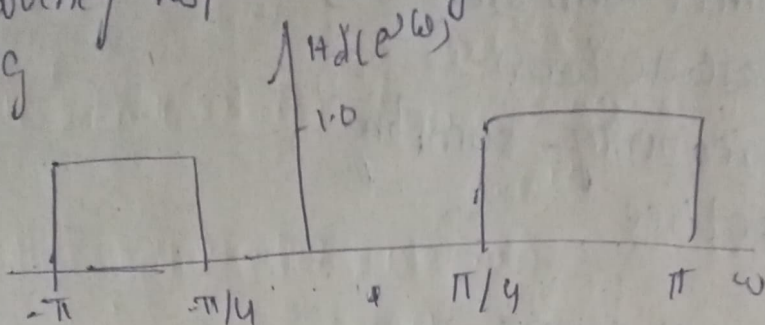 g
Hd(e^jω)
1.0
-π -π/4 π/4 π ω